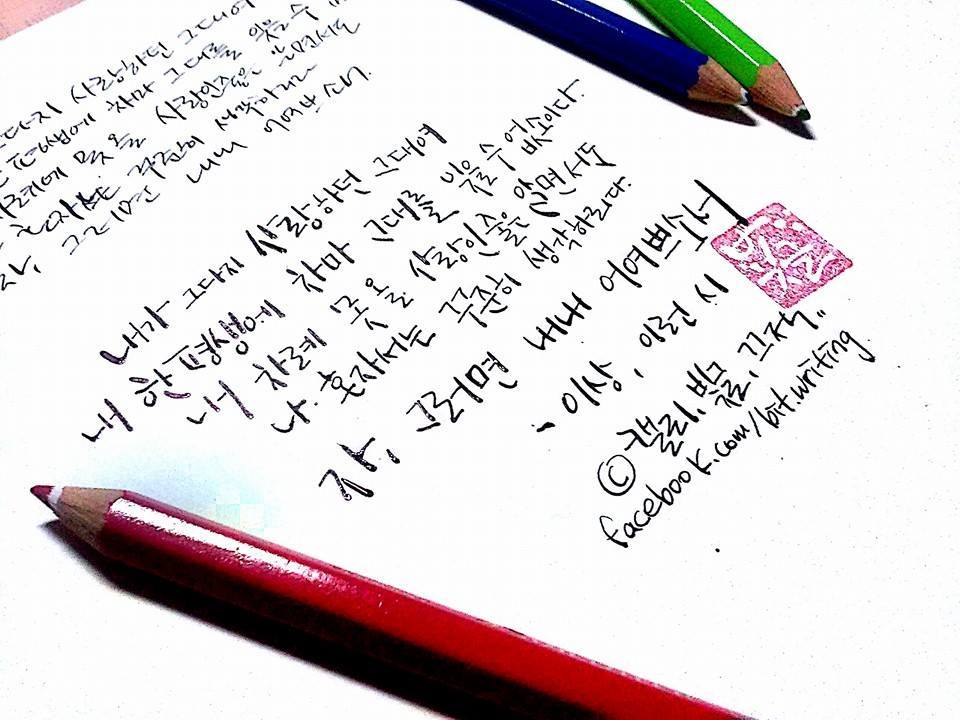 그다지 사랑하던 그대여
평생에 차마 그대를 잊을 수
못 올 사랑인줄은 알면서도
혼자서는 꾸준히 생각하리라
그러면 내내 어여쁘소서.
내가 그다지 사랑하던 그대여
내 한 평생에 차마 그대를 잊을 수 없소이다.
내 차례 못 올 사랑인줄은 알면서도
나 혼자서는 꾸준히 생각하리라.
자, 그러면 내내 어여쁘소서
- 이상, 이런 시
© 캘리, 빛글, 끄적..
facebook.com/bit.writing